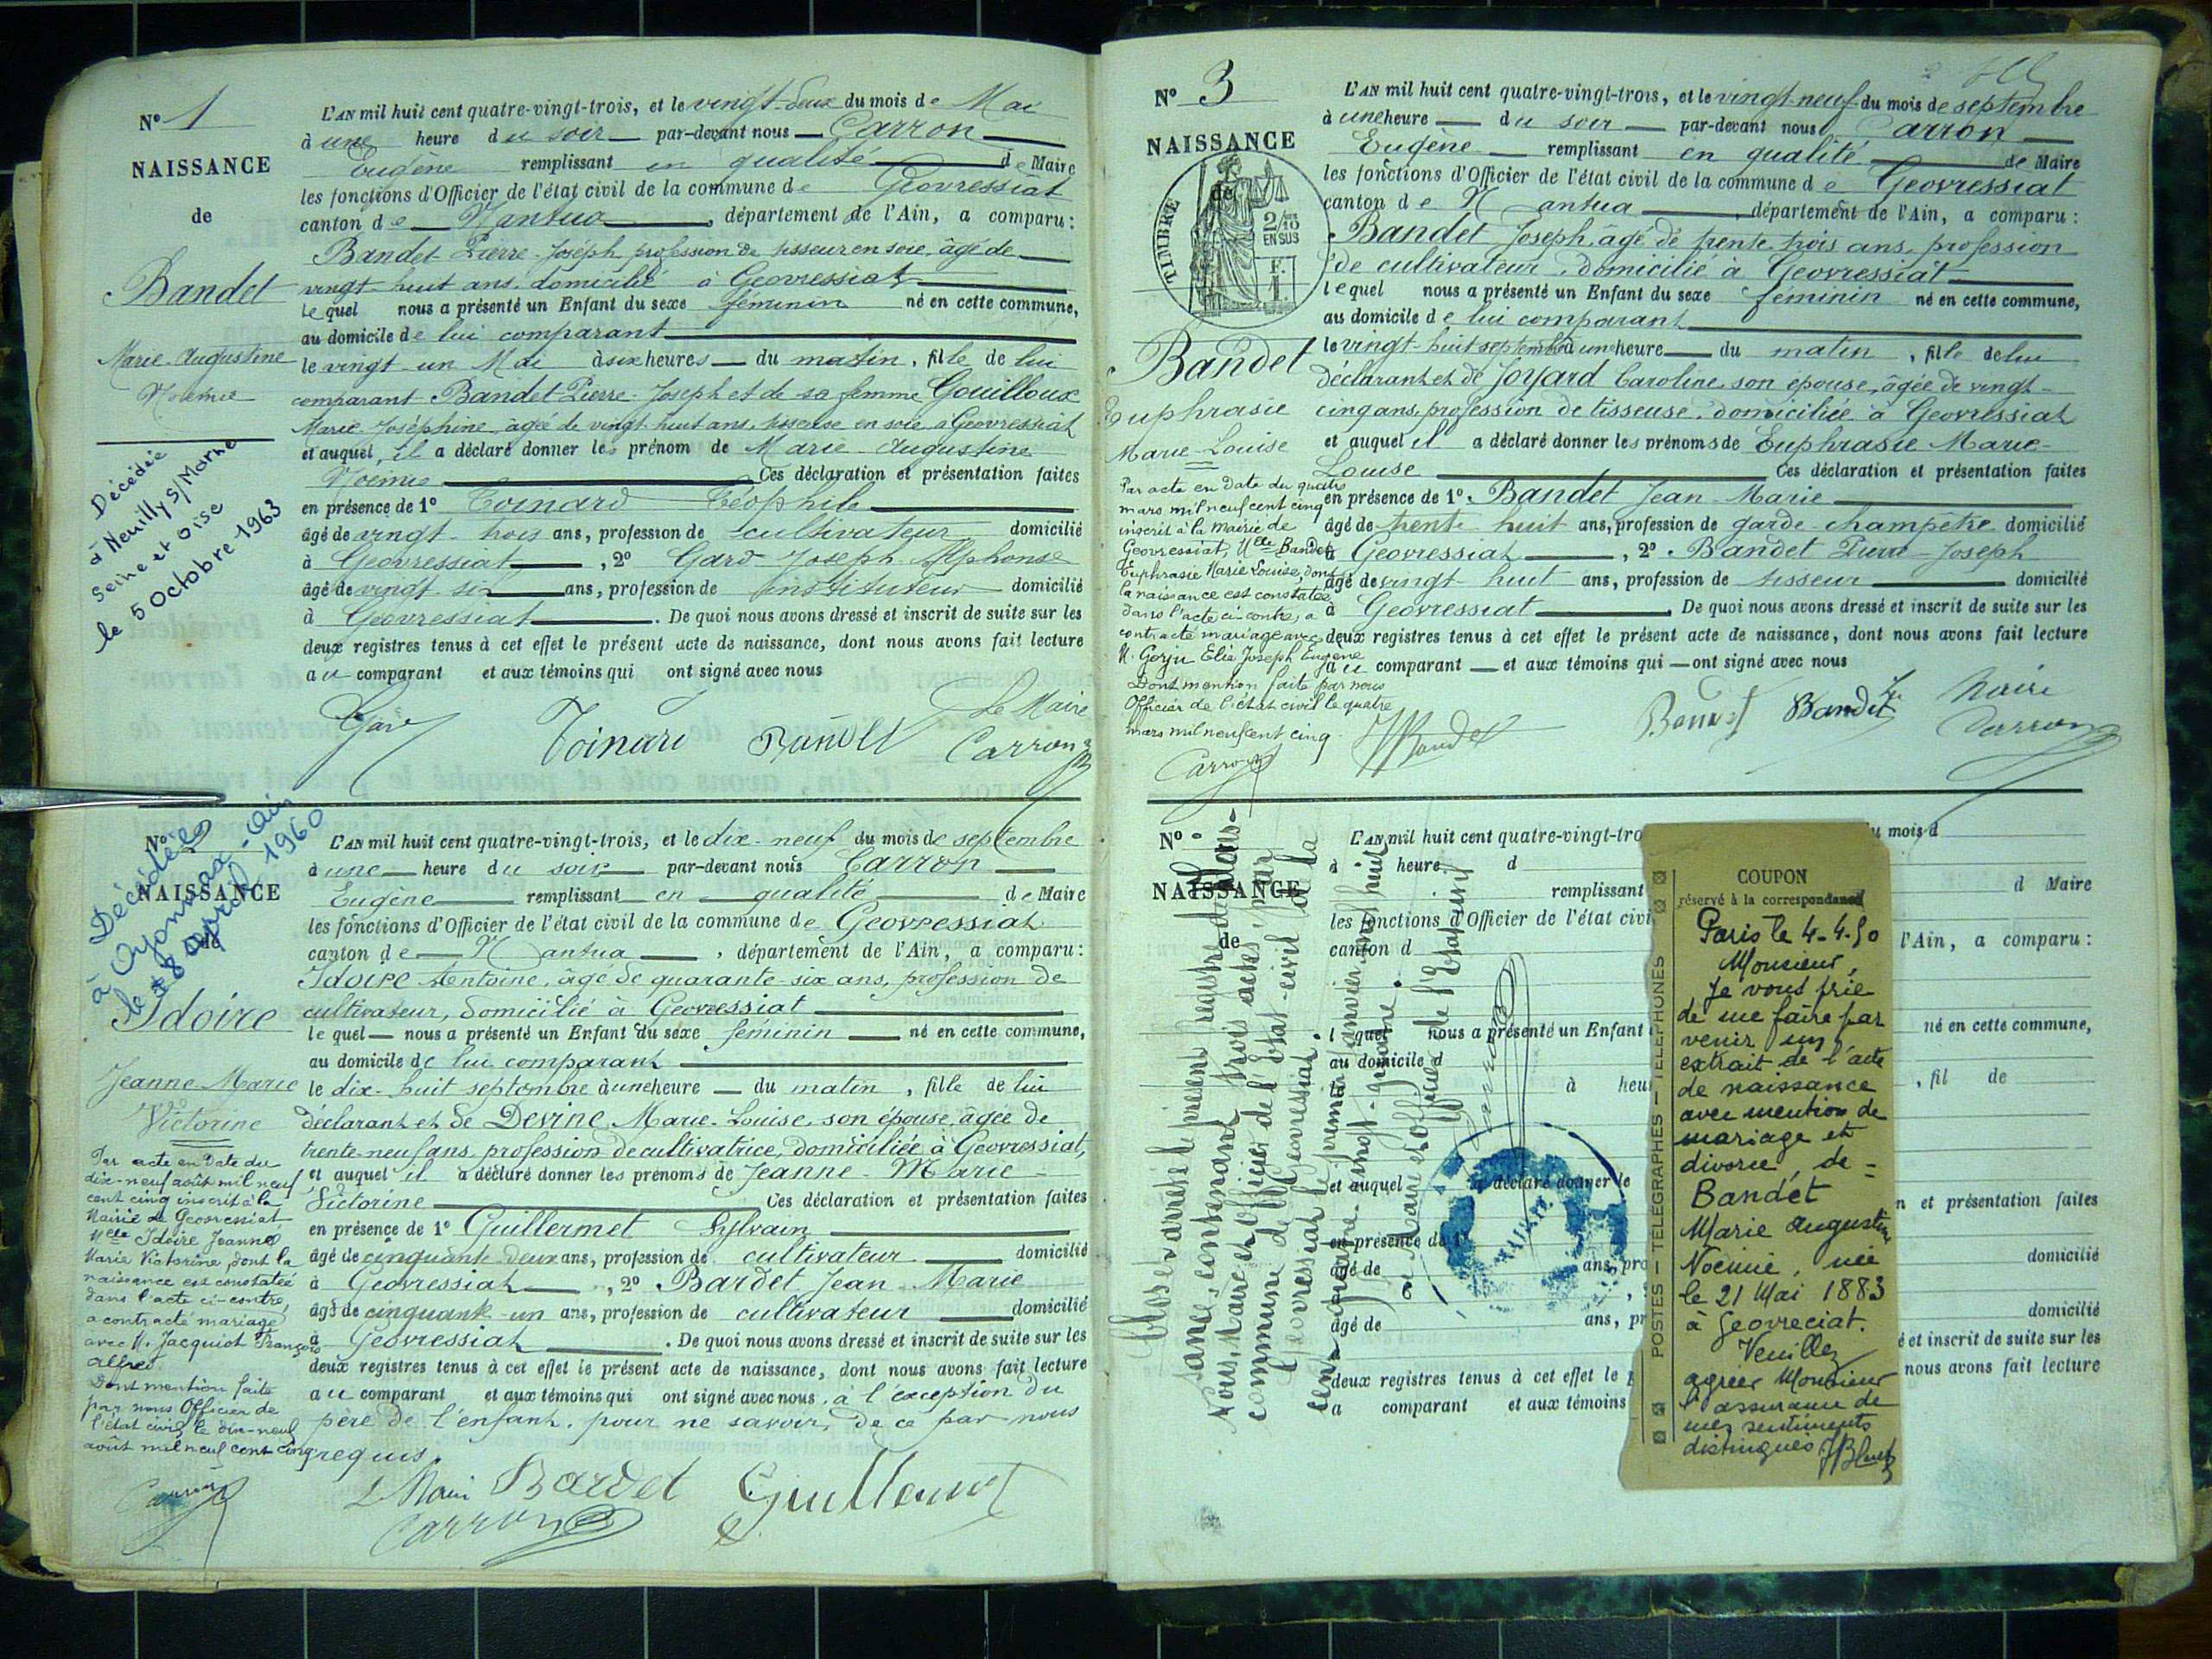 N° 1
NAISSANCE
de
Bandet
Marie-Augustine
Noémie
Décédée
à Neuilly s/Marne
Seine et Oise
le 5 Octobre 1963
L'AN mil huit cent quatre-vingt-trois, et le vingt-deux du mois de Mai
à une heure du soir par-devant nous Carron
Eugène remplissant en qualité de Maire
les fonctions d'Officier de l'état civil de la commune de Géovressiat
canton de Nantua, département de l'Ain, a comparu:
Bandet Pierre-Joseph profession de tisseur en soie, âgé de
vingt-huit ans, domicilié à Géovressiat
lequel nous a présenté un Enfant du sexe féminin né en cette commune,
au domicile de lui comparant
le vingt-un Mai à six heures du matin, fille de lui
comparant Bandet Pierre-Joseph et de sa femme Gouilloux
Marie-Joséphine, âgée de vingt-huit ans, tisseuse en soie à Géovressiat
et auquel il a déclaré donner les prénom de Marie-Augustine
Noémie Ces déclaration et présentation faites
en présence de 1° Toinard Téophile
âgé de vingt-trois ans, profession de cultivateur domicilié
à Géovressiat, 2° Gard Joseph Alphonse
âgé de vingt-six ans, profession de instituteur domicilié
à Géovressiat. De quoi nous avons dressé et inscrit de suite sur les
deux registres tenus à cet effet le présent acte de naissance, dont nous avons fait lecture
au comparant et aux témoins qui ont signé avec nous
Le Maire
Gard Toinard Bandet Carron
N°
NAISSANCE
de
Décédée
à Oyonnax - Ain
le 8 avril 1960
Idoire
Jeanne Marie
Victorine
Par acte en date du
dix-neuf août mil neuf
cent cinq inscrit à la
Mairie de Géovressiat
Melle Idoire Jeanne
Marie Victorine, dont la
naissance est constatée
dans l'acte ci-contre,
a contracté mariage
avec M. Jacquiot François
Alfred
Dont mention faite
par nous Officier de
l'état civil le dix-neuf
août mil neuf cent cinq
Carron
L'AN mil huit cent quatre-vingt-trois, et le dix-neuf du mois de septembre
à une heure du soir par-devant nous Carron
Eugène remplissant en qualité de Maire
les fonctions d'Officier de l'état civil de la commune de Géovressiat
canton de Nantua, département de l'Ain, a comparu:
Idoire Antoine, âgé de quarante-six ans, profession de
cultivateur, domicilié à Géovressiat
lequel nous a présenté un Enfant du sexe féminin né en cette commune,
au domicile de lui comparant
le dix-huit septembre à une heure du matin, fille de lui
déclarant et de Devine Marie-Louise, son épouse, âgée de
trente-neuf ans, profession de cultivatrice, domiciliée à Géovressiat,
et auquel il a déclaré donner les prénoms de Jeanne Marie
Victorine Ces déclaration et présentation faites
en présence de 1° Guillermet Sylvain
âgé de cinquante-deux ans, profession de cultivateur domicilié
à Géovressiat, 2° Bardet Jean Marie
âgé de cinquante-un ans, profession de cultivateur domicilié
à Géovressiat. De quoi nous avons dressé et inscrit de suite sur les
deux registres tenus à cet effet le présent acte de naissance, dont nous avons fait lecture
au comparant et aux témoins qui ont signé avec nous, à l'exception du
père de l'enfant, pour ne savoir, de ce par nous
requis.
Le Maire Bardet Guillermet
Carron
N° 3
NAISSANCE
de
TIMBRE
2/10
EN SUS
F.
1.
Bandet
Euphrasie
Marie-Louise
Par acte en date du quatre
mars mil neuf cent cinq
inscrit à la mairie de
Géovressiat, Melle Bandet
Euphrasie Marie Louise, dont
la naissance est constatée
dans l'acte ci-contre, a
contracté mariage avec
M. Gorju Elie Joseph Eugène
Dont mention faite par nous
Officier de l'état civil le quatre
mars mil neuf cent cinq.
Carron
L'AN mil huit cent quatre-vingt-trois, et le vingt-neuf du mois de septembre
à une heure du soir par-devant nous Carron
Eugène remplissant en qualité de Maire
les fonctions d'Officier de l'état civil de la commune de Géovressiat
canton de Nantua, département de l'Ain, a comparu:
Bandet Joseph, âgé de trente-trois ans, profession
de cultivateur, domicilié à Géovressiat
lequel nous a présenté un Enfant du sexe féminin né en cette commune,
au domicile de lui comparant
le vingt-huit septembre à une heure du matin, fille de lui
déclarant et de Joyard Caroline, son épouse, âgée de vingt-
cinq ans, profession de tisseuse, domiciliée à Géovressiat
et auquel il a déclaré donner les prénoms de Euphrasie Marie-
Louise Ces déclaration et présentation faites
en présence de 1° Bandet Jean-Marie
âgé de trente-huit ans, profession de garde-champêtre domicilié
à Géovressiat, 2° Bandet Pierre-Joseph
âgé de vingt-huit ans, profession de tisseur domicilié
à Géovressiat. De quoi nous avons dressé et inscrit de suite sur les
deux registres tenus à cet effet le présent acte de naissance, dont nous avons fait lecture
au comparant et aux témoins qui ont signé avec nous
Le Maire
Bandet Bandet Bandet Carron
N°
NAISSANCE
de
L'AN mil huit cent quatre-vingt-tro u mois d
à heure d
remplissant d Maire
les fonctions d'Officier de l'état civi
canton d l'Ain, a comparu:
l quel nous a présenté un Enfant né en cette commune,
au domicile d
le à heu , fil de
et auquel a déclaré donner le
n et présentation faites
en présence de 1°
âgé de ans, pro domicilié
âgé de ans, pr domicilié
à é et inscrit de suite sur les
deux registres tenus à cet effet le p nous avons fait lecture
a comparant et aux témoins
Clos et arrêté le présent registre de Nais-
sance, contenant trois actes, par
Nous, Maire et Officier de l'Etat-civil de la
commune de Géovressiat.
Géovressiat le premier janvier mil huit
cent quatre-vingt-quatre.
Le Maire et Officier de l'Etat-civil
Carron
MAIRIE
POSTES — TELEGRAPHES — TELEPHONES
COUPON
réservé à la correspondance
Paris le 4-4-50
Monsieur,
Je vous prie
de me faire par
venir un
extrait de l'acte
de naissance
avec mention de
mariage et
divorce, de =
Bandet
Marie Augustine
Noémie, née
le 21 Mai 1883
à Geovreciat.
Veuillez
agréer Monsieur
l'assurance de
mes sentiments
distingués